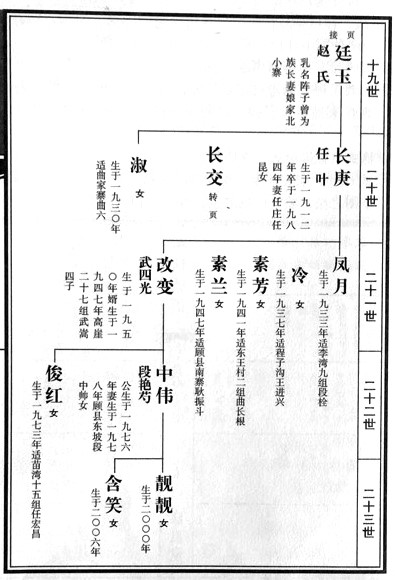 十九世
接 页
廷玉
赵氏
乳名阵子曾为
族长妻娘家北
小寨
二十世
长庚
任叶
生于一九一二
年卒于一九八
四年妻任庄任
昆女
长交
转 页
淑 女
生于一九三〇年
适曲家寨曲六
二十一世
凤月
生于一九三三年适李湾九组段栓
冷 女
生于一九三七年适程子沟王进兴
素芳 女
生于一九四一年适东王村二组曲长根
素兰 女
生于一九四七年适顾县南寨耿振斗
改变
武四光
生于一九五
〇年婿生于一
九四七年高崖
二十七组武嵩
四子
二十二世
中伟
段艳芍
公生于一九七六
年妻生于一九七
八年顾县东坡段
中帅女
俊红 女
生于一九七三年适苗湾十五组任宏昌
二十三世
靓靓 女
生于二〇〇〇年
含笑 女
生于二〇〇六年